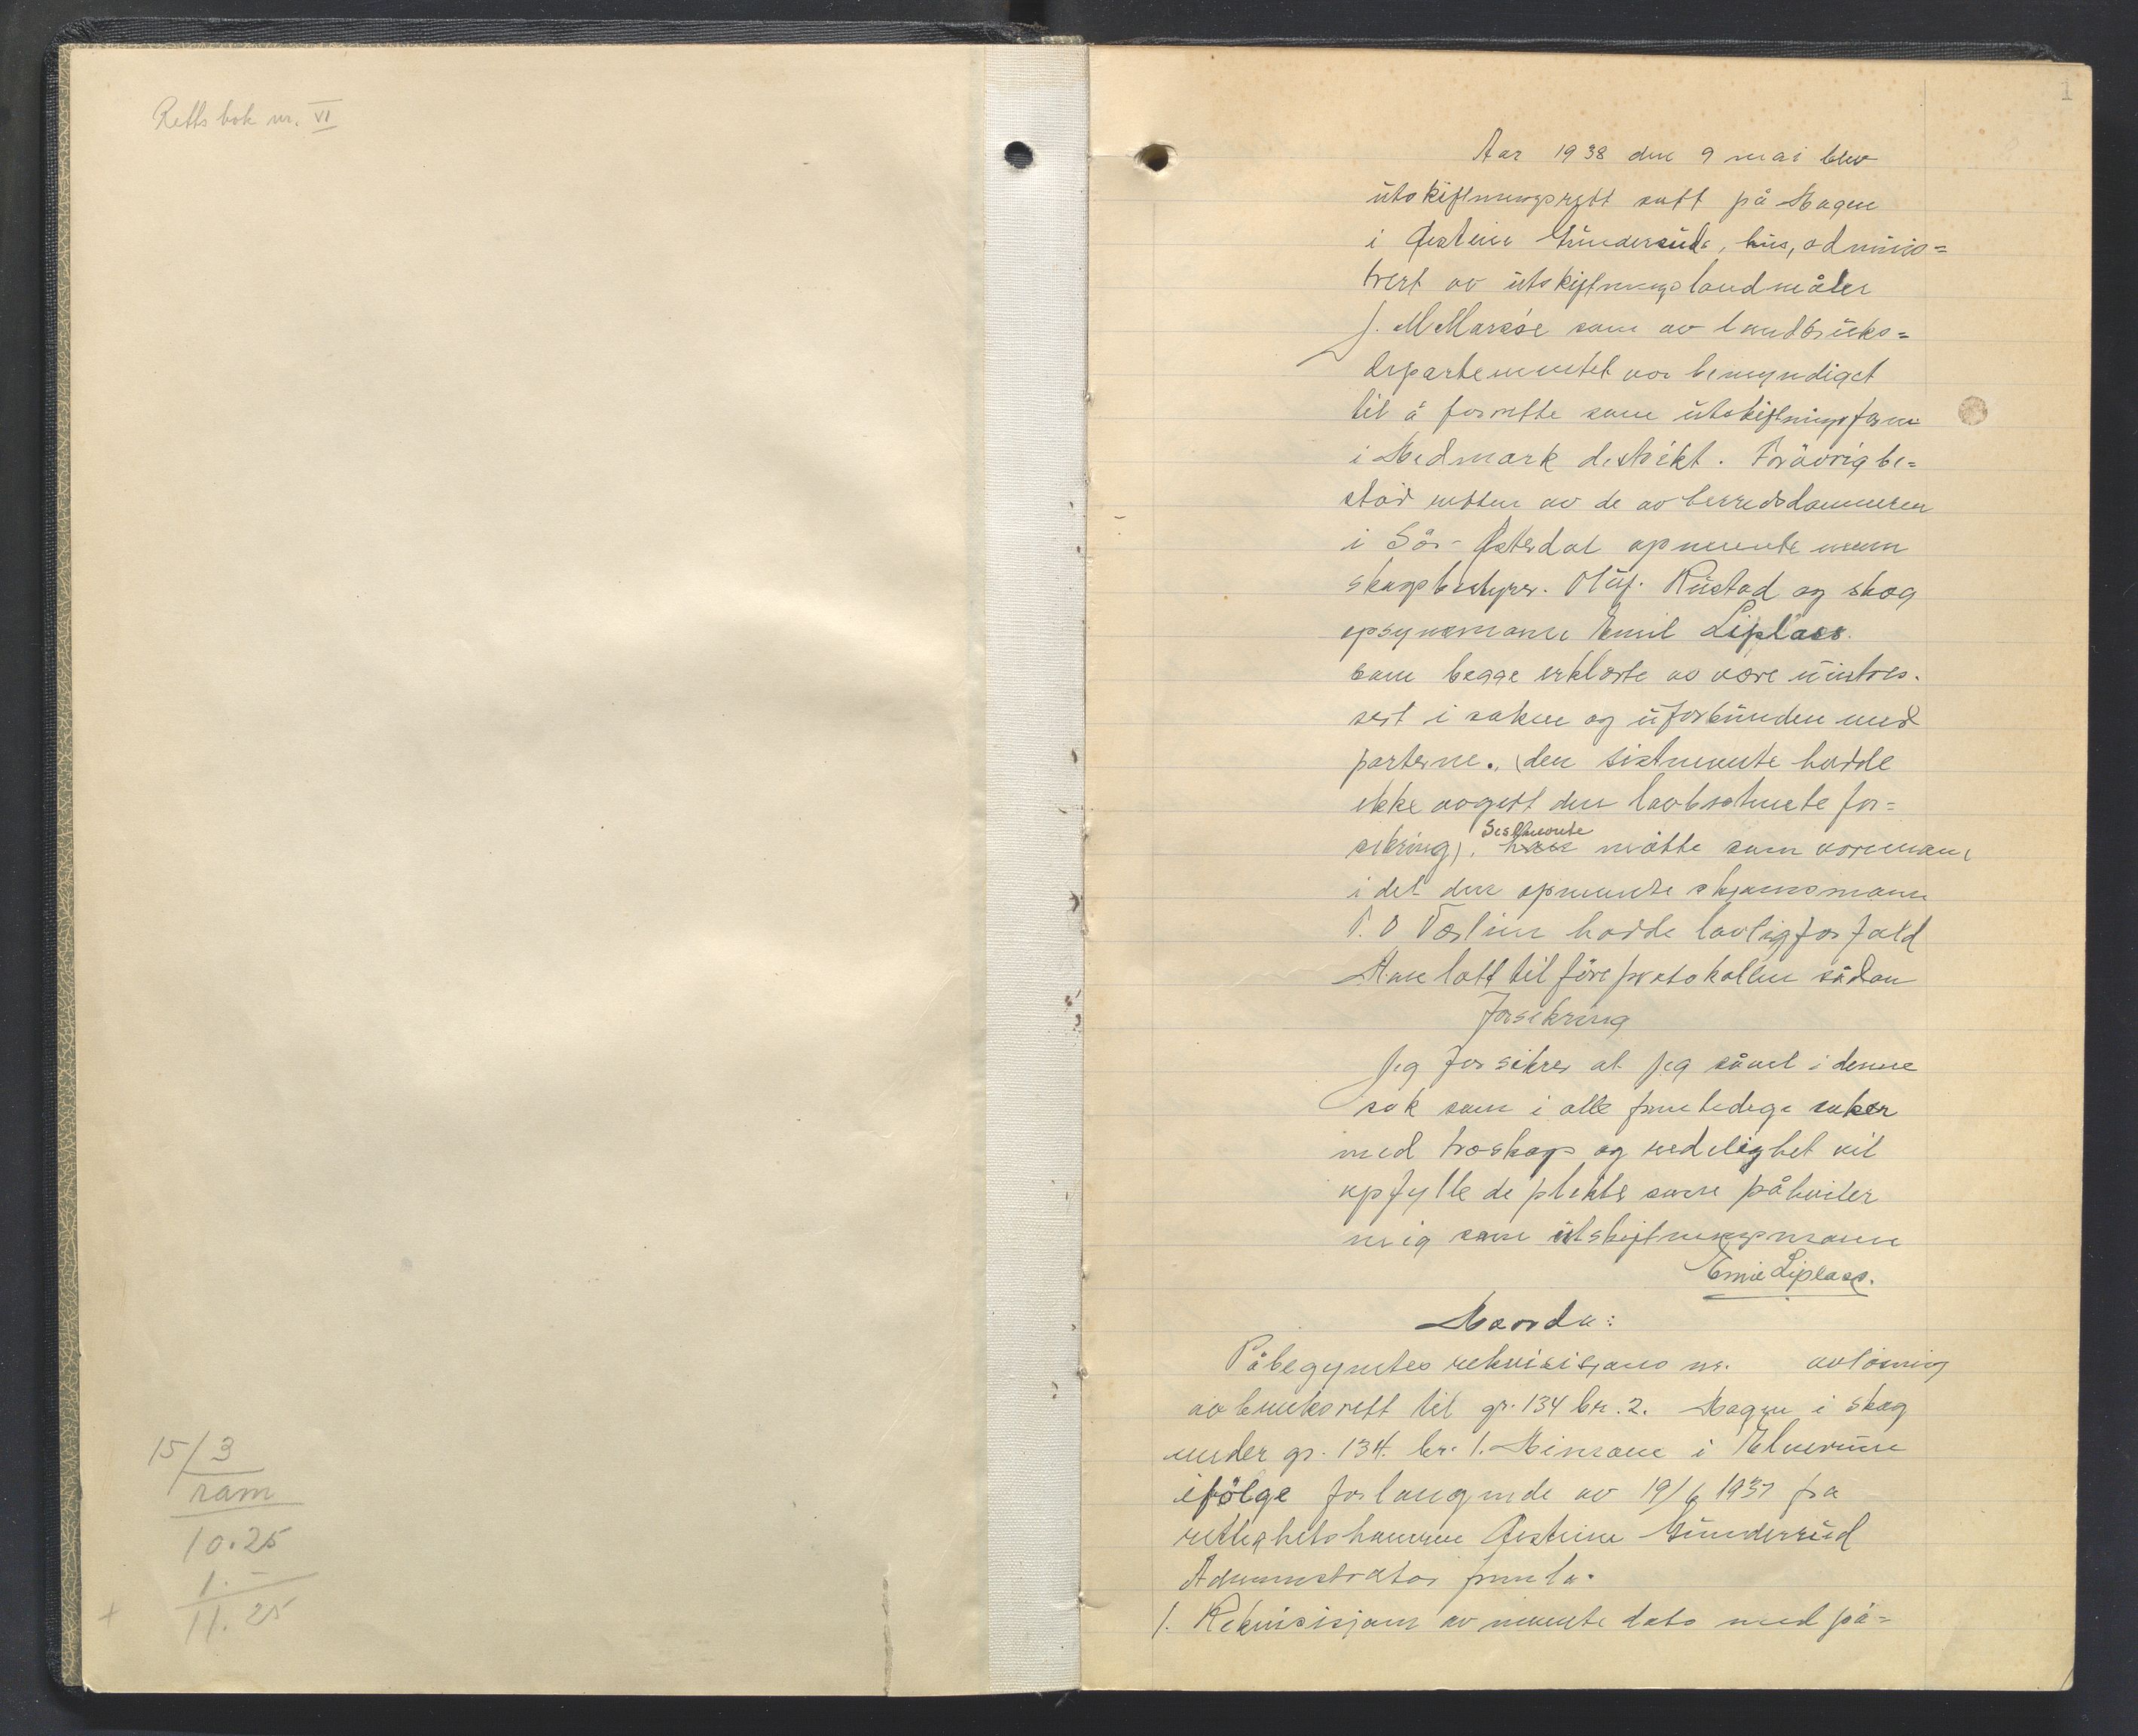 Rettsbok nr. VI
15/3
ram
10.25
1.-
+ 11.25
1
Aar 1938 den 9 mai blev
utskiftningsrett satt på Hagen
i Østeine Gundersuds, hus, adminis=
trert av utskiftningslandmåler
J. M Marsøe som av landbruks=
departementet var bemyndiget
til å forrette som utskiftningsform
i Hedmark distrikt. Forövrig be=
stod retten av de av herredsdommeren
i Sör-Østerdal opnevnte menn
skogbestyrer. Oluf. Rustad og skog
opsynsmann Emil Liplass.
som begge erklærte å være uintres.
sert i saken og uforbunden med
parterne., (den sistnevnte hadde
ikke avgitt den lovbestemte for=
sikring), Sistnevnte møtte som varemann
i det den opnevnte skjønnsmann
P. O Vestlien hadde lovlig forfald
Han lott til före protokollen sådan
Forsikring
Jeg forsikrer at jeg såvel i denne
sak som i alle fremtidige saker
med troskap og redelighet vil
opfylle de plikter som påhviler
mig som utskiftningsmann
Emil Liplass.
Havda:
Påbegyntes rekvisisjons nr. avløsning
av bruksrett til gr. 134 br. 2. Hagen i skog
under gr. 134. br. 1. Hernsmoen i Elverum
ifölge forlangende av 19/6 1937 fra
rettighetshaveren Østeine Gundersud
Administrator fremla.
1. Rekvisisjon av nevnte dato med på=